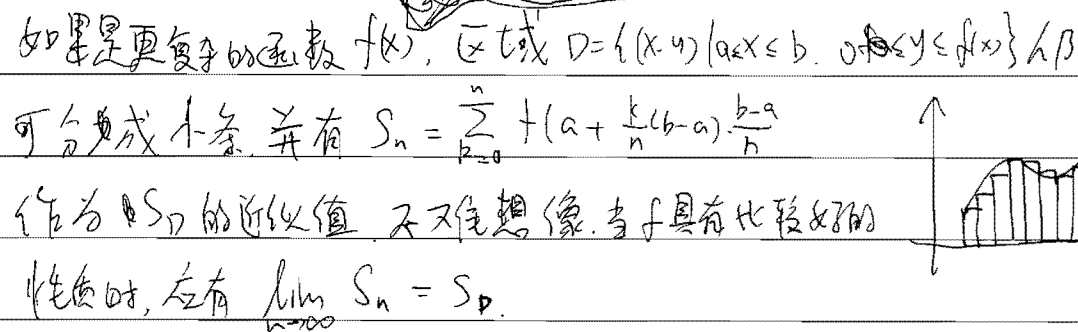 如果是更复杂的函数 f(x), 区域 D={(x,y)|a≤x≤b, 0≤y≤f(x)}
可分成小条, 并有 Sₙ = ∑ₖ₌₀ⁿ f(a + k/n(b-a))·(b-a)/n
作为 S_D 的近似值. 不难想像, 当f具有比较好的
性质时, 应有 lim_{n→∞} Sₙ = S_D.